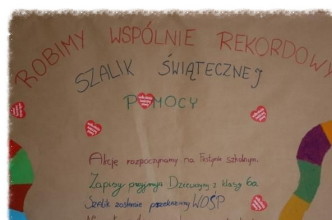 ROBIMY WSPÓLNIE REKORDOWY
SZALIK ŚWIĄTECZNEJ
POMOCY
Akcję rozpoczynamy na Festynie szkolnym.
Zapisy przyjmują Dziewczyny z klasy 6a
Szalik zostanie przekazany WOŚP